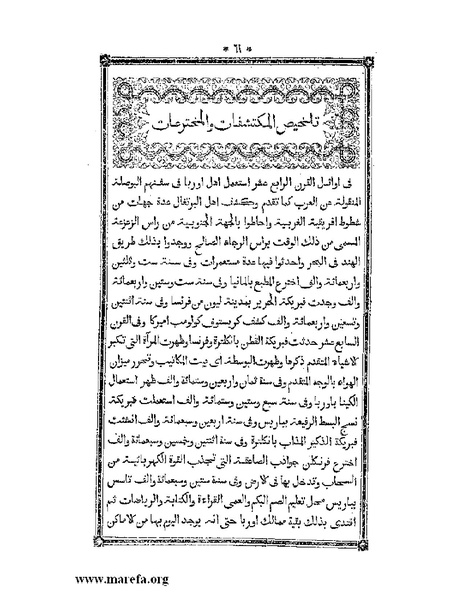 * ٦٦ *
تلخيص المكتشفات والمخترعات
فى اوائل القرن الرابع عشر استعمل اهل اوربا فى سفنهم البوصلة
المنقولة عن العرب كما تقدم وكشف اهل البرتغال عدة جهات من
شطوط افريقية الغربية واحاطوا بالجهة الجنوبية من راس الزعزعة
المسمى من ذلك الوقت براس الرجاء الصالح ووجدوا بذلك طريق
الهند فى البحر واحدثوا فيها عدة مستعمرات وفى سنة ست وثلثين
واربعمائة والف اخترع المطبع بالمانيا وفى سنة ست وستين واربعمائة
والف وجدت فبريكة الحرير بمدينة ليون من فرنسا وفى سنة اثنتين
وتسعين واربعمائة والف كشف كريستوف كولومب اميركا وفى القرن
السابع عشر حدثت فبريكة القطن بانكلترة وفرنسا وظهرت المرآة التى تكبر
الاشياء المتقدم ذكرها وظهرت البوسطة اى بيت المكاتيب وتحرر ميزان
الهواء بالوجه المتقدم وفى سنة ثمان واربعين وستمائة والف ظهر استعمال
الكينا باوربا وفى سنة سبع وستين وستمائة والف استعملت فبريكة
نسج البسط الرفيعة بباريس وفى سنة اربعين وسبعمائة والف انشئت
فبريكة الذكير المذاب بانكلترة وفى سنة اثنتين وخمسين وسبعمائة والف
اخترع فرنكلن جواذب الصاعقة التى تجذب القوة الكهربائية من
السحاب وتدخل بها فى الارض وفى سنة ستين وسبعمائة والف تاسس
بباريس محل تعليم الصم البكم والعمى القراءة والكتابة والرياضات ثم
اقتدى بذلك بقية ممالك اوربا حتى انه يوجد اليوم بها من الاماكن
www.marefa.org